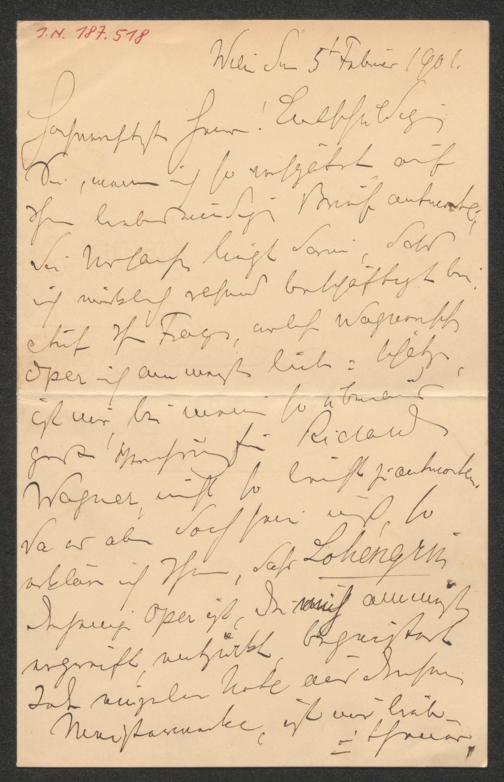 J.N. 187.518
Wien den 5ᵗ Februar 1901.
Hochverehrter Herr! Entschuldigen
Sie, wenn ich so verspätet auf
Ihr liebenswürdiges Brief antworte,
die Ursache liegt darin, daß
ich wirklich rasend beschäftigt bin.
Auf Ihre Frage, welche Wagner'sche
Oper ich am meisten liebe u. schätze,
ist mir, bei meiner so
große Verehrung für Richard
Wagner, nicht so leicht zu antworten.
Da es aber doch sein muß, so
erkläre ich Ihnen, daß Lohengrin
diejenige Oper ist, die mich am meisten
ergreift, entzückt, begeistert
Jede einzelne Note aus diesem
Meisterwerke, ist mir lieb
u. theuer,